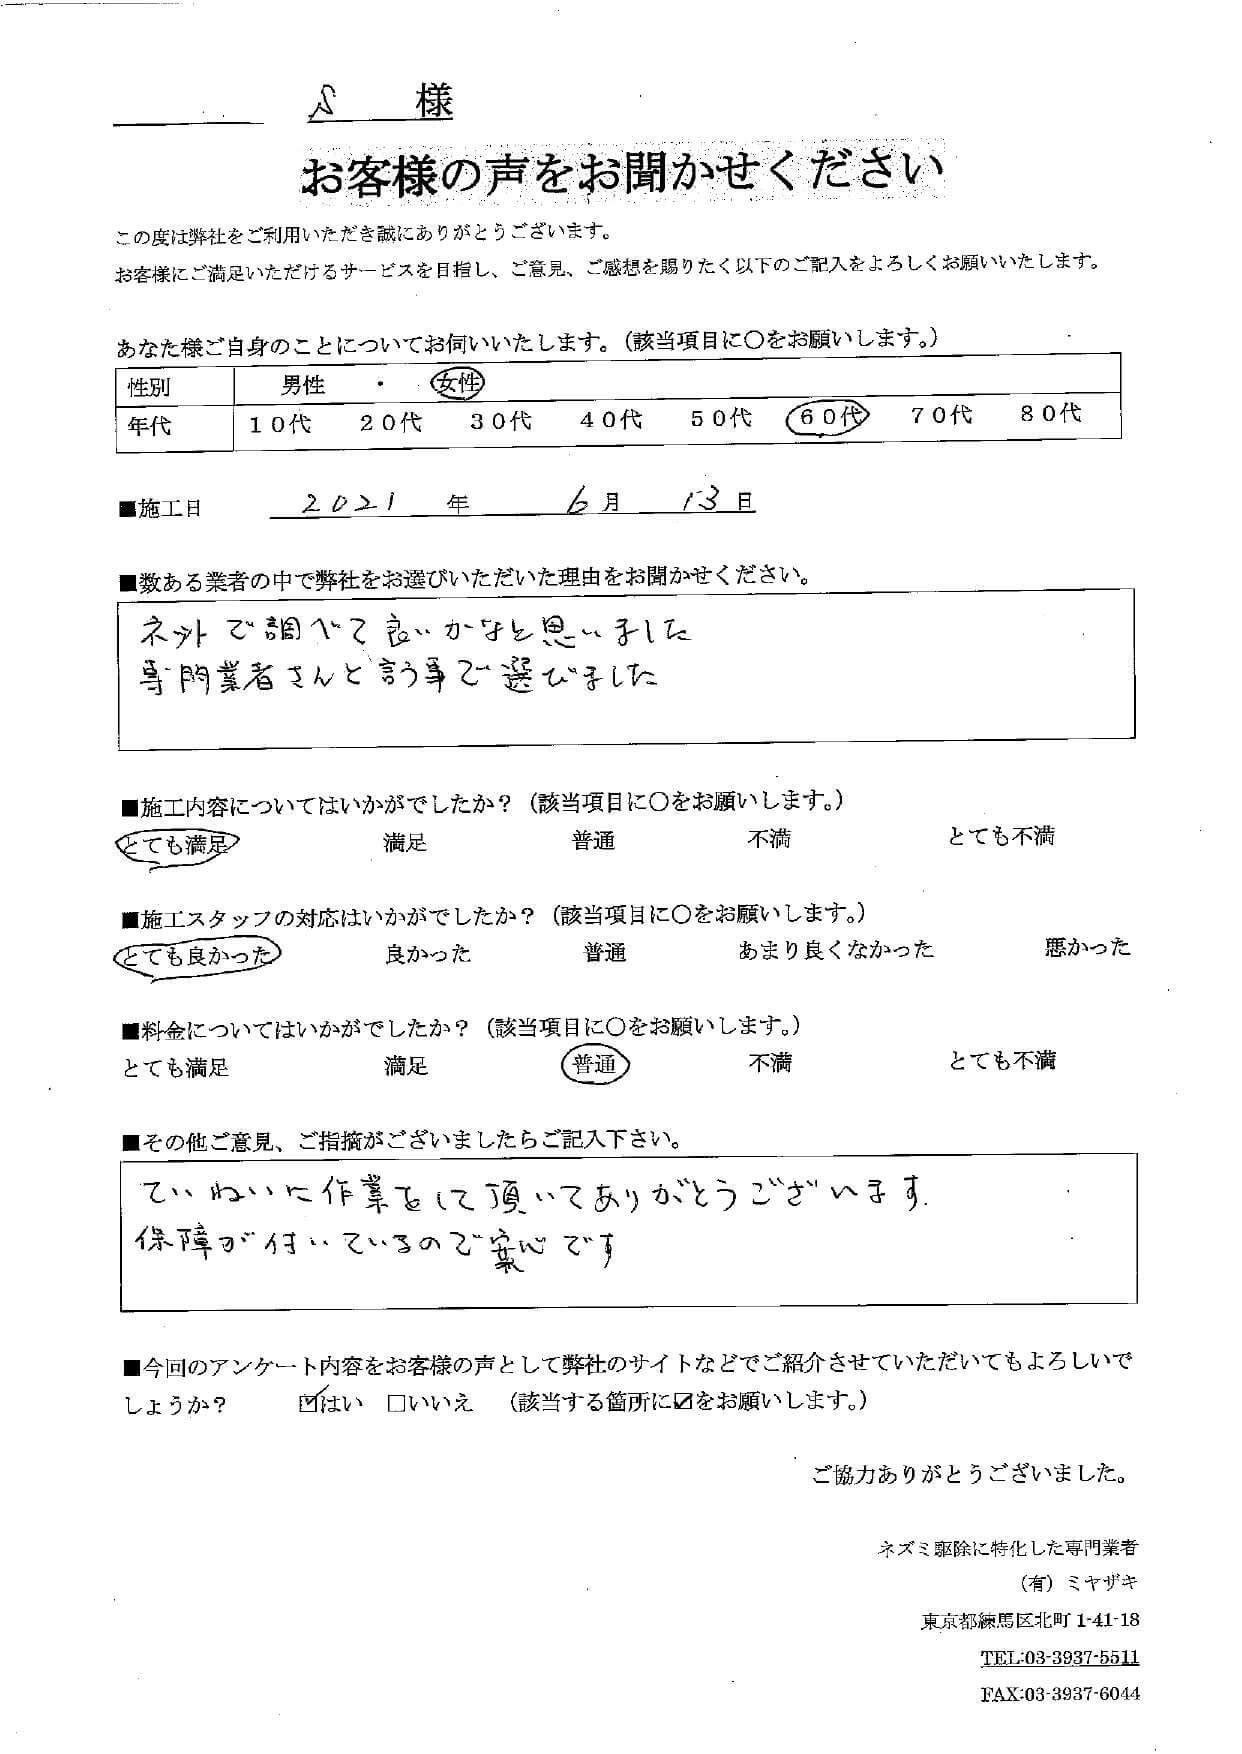 S 様
お客様の声をお聞かせください
この度は弊社をご利用いただき誠にありがとうございます。
お客様にご満足いただけるサービスを目指し、ご意見、ご感想を賜りたく以下のご記入をよろしくお願いいたします。
あなた様ご自身のことについてお伺いいたします。（該当項目に〇をお願いします。）
性別 男性 ・ 女性
年代 １０代 ２０代 ３０代 ４０代 ５０代 ６０代 ７０代 ８０代
■施工日 2021 年 6 月 13 日
■数ある業者の中で弊社をお選びいただいた理由をお聞かせください。
ネットで調べて良いかなと思いました
専門業者さんと言う事で選びました
■施工内容についてはいかがでしたか？（該当項目に〇をお願いします。）
とても満足 満足 普通 不満 とても不満
■施工スタッフの対応はいかがでしたか？（該当項目に〇をお願いします。）
とても良かった 良かった 普通 あまり良くなかった 悪かった
■料金についてはいかがでしたか？（該当項目に〇をお願いします。）
とても満足 満足 普通 不満 とても不満
■その他ご意見、ご指摘がございましたらご記入下さい。
ていねいに作業をして頂いてありがとうございます.
保障が付いているので安心です
■今回のアンケート内容をお客様の声として弊社のサイトなどでご紹介させていただいてもよろしいで
しょうか？ ☑はい □いいえ （該当する箇所に☑をお願いします。）
ご協力ありがとうございました。
ネズミ駆除に特化した専門業者
（有）ミヤザキ
東京都練馬区北町 1-41-18
TEL:03-3937-5511
FAX:03-3937-6044